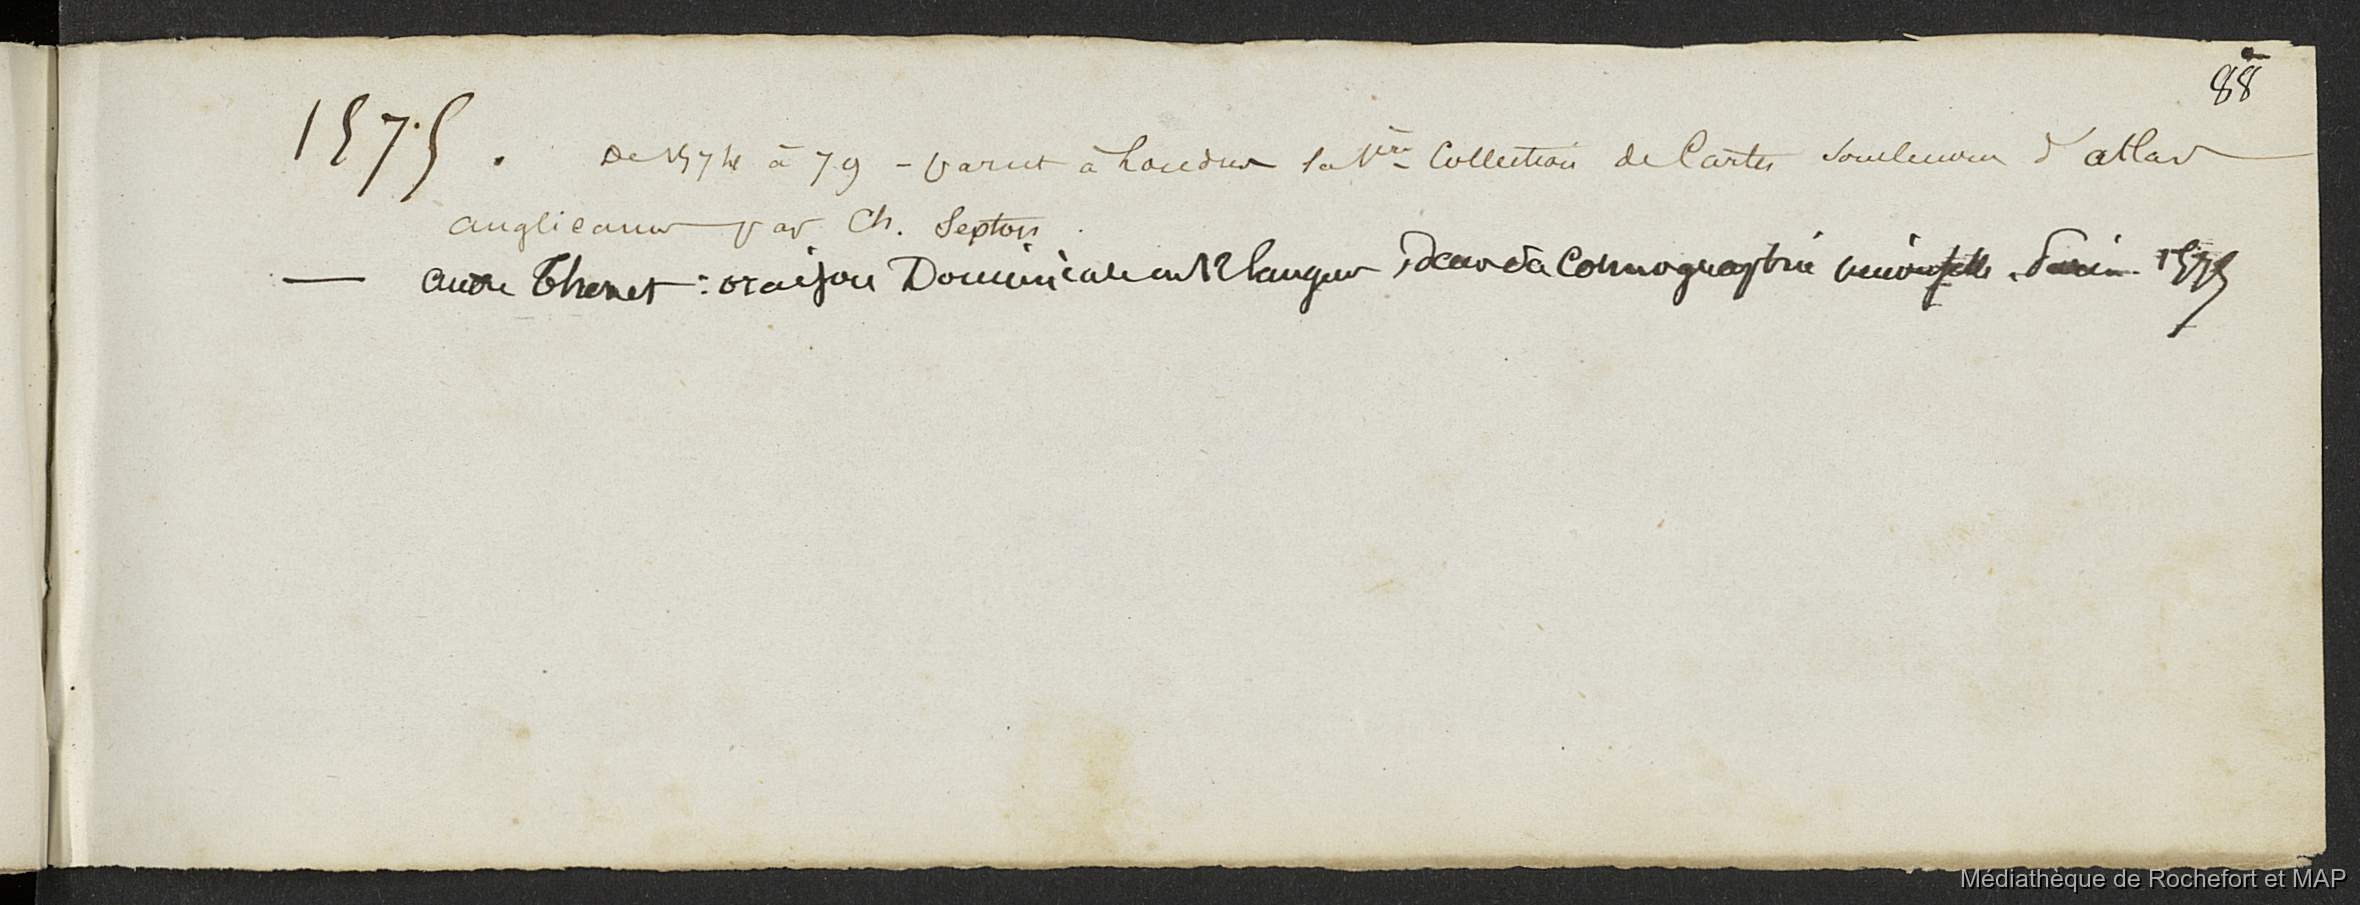 88
1575. De 1574 à 79 - parut à Londres la 1ère Collection de Cartes sous le nom d'atlas
anglicanus par Ch. Septon
— andre Thevet : oraison Dominicale en 12 langues, dans sa Cosmographie universelle. Paris. 1575
Médiathèque de Rochefort et MAP